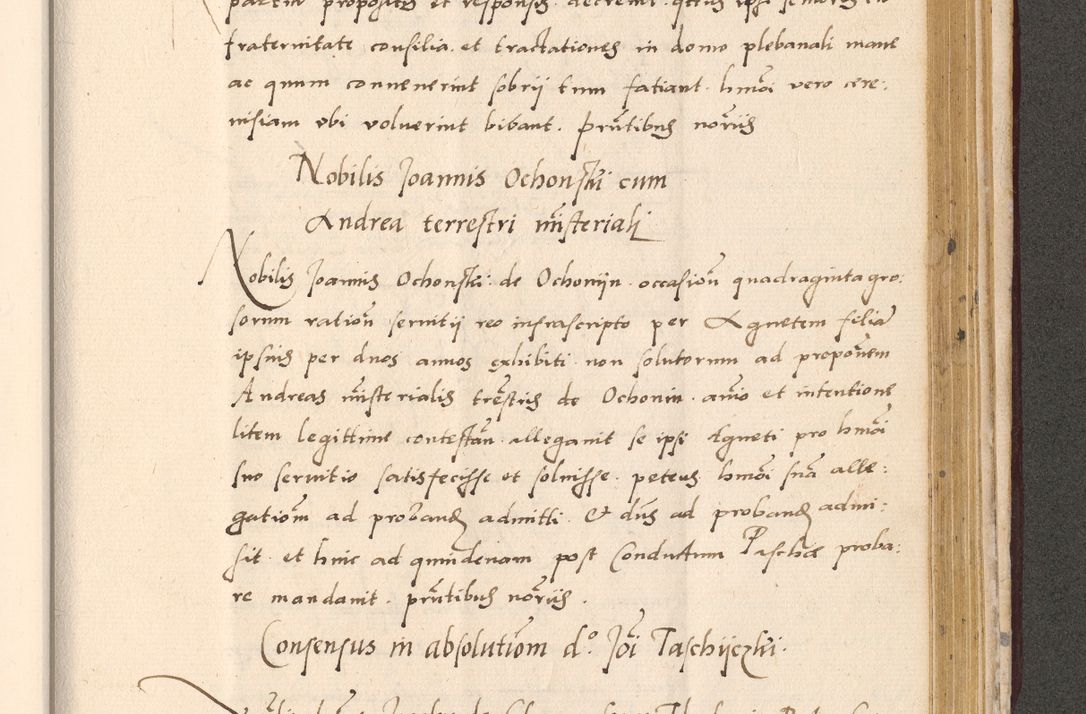 partim propositis et responsis decrevit
fraternitate consilia et tractationes in domo plebanali mane
ac quum convenerint sobrii tum fatiant. hmõi vero cere:
visiam ubi voluerint bibant. prñtibus nõriis
Nobilis Joannis Ochonski cum
Andrea terrestri mĩsteriali
Nobilis Joannis Ochonski de Ochonijn occasioñ quadraginta gro:
sorum rationẽ servitij reo infrascripto per Agnetem filiã
ipsius per duos annos exhibiti non solutorum ad propoñem
Andreas mĩsterialis trẽstris de Ochonin. anĩo et intentione
litem legittime contestañ. allegavit se ipsi Agneti pro hmõi
suo servitio satisfecisse et solvisse. petens hmõi suã alle:
gatioñm ad probandũ admitti. Et dñs ad probandũ admi:
sit. et huic ad quindenam post Conductum Paschae proba:
re mandavit. prñtibus nõriis.
Consensus in absolutioñm d.º Joñi Taschijczki.